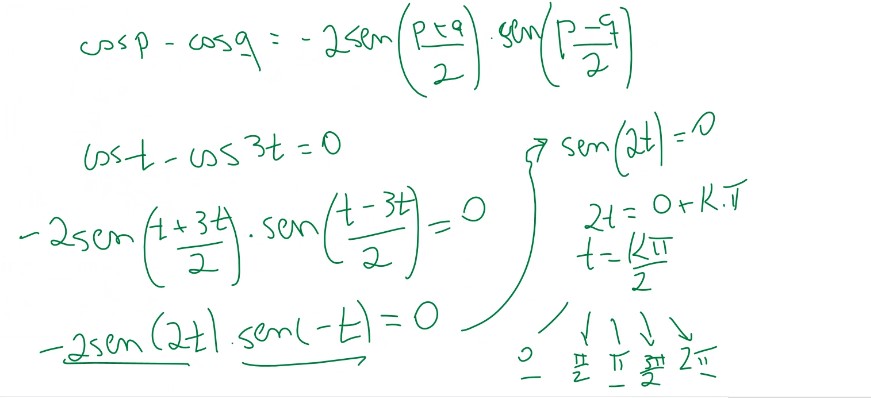 cos p - cos q = -2sen((p+q)/2) . sen((p-q)/2)
cos t - cos 3t = 0
-2sen((t+3t)/2) . sen((t-3t)/2) = 0
-2sen(2t) . sen(-t) = 0
sen(2t) = 0
2t = 0 + K.π
t = Kπ/2
0 π/2 π 3π/2 2π